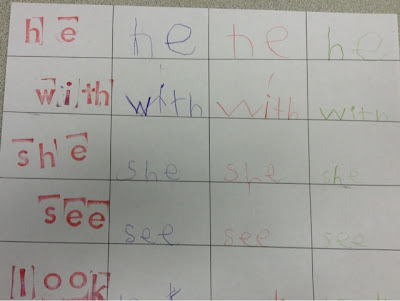 he he he he
with with with with
she she she she
see see see see
look